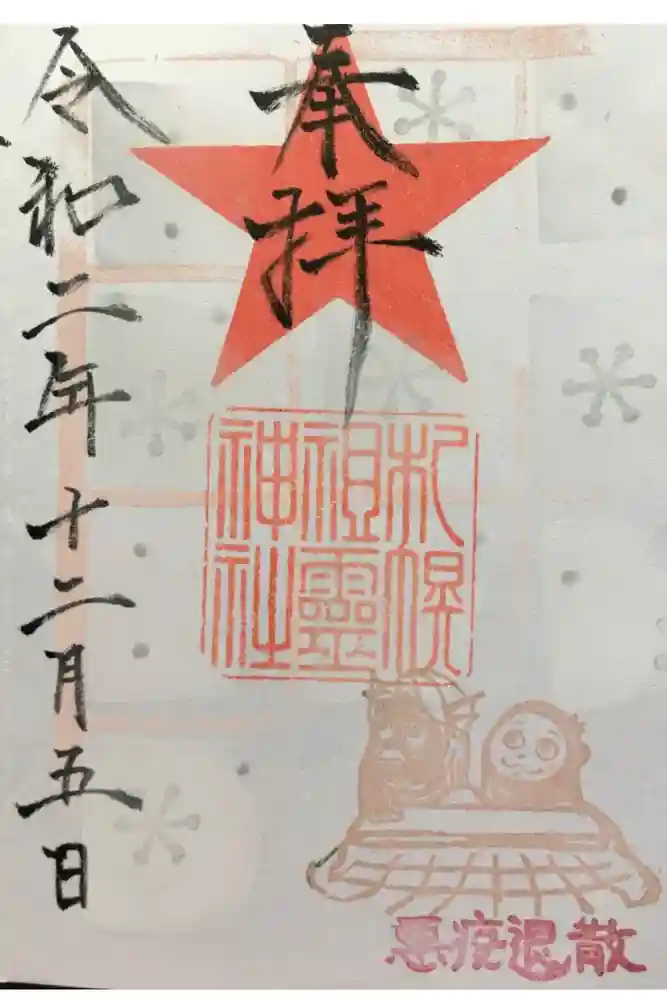 奉拝
札幌
祖霊
神社
令和二年十二月五日
悪疫退散